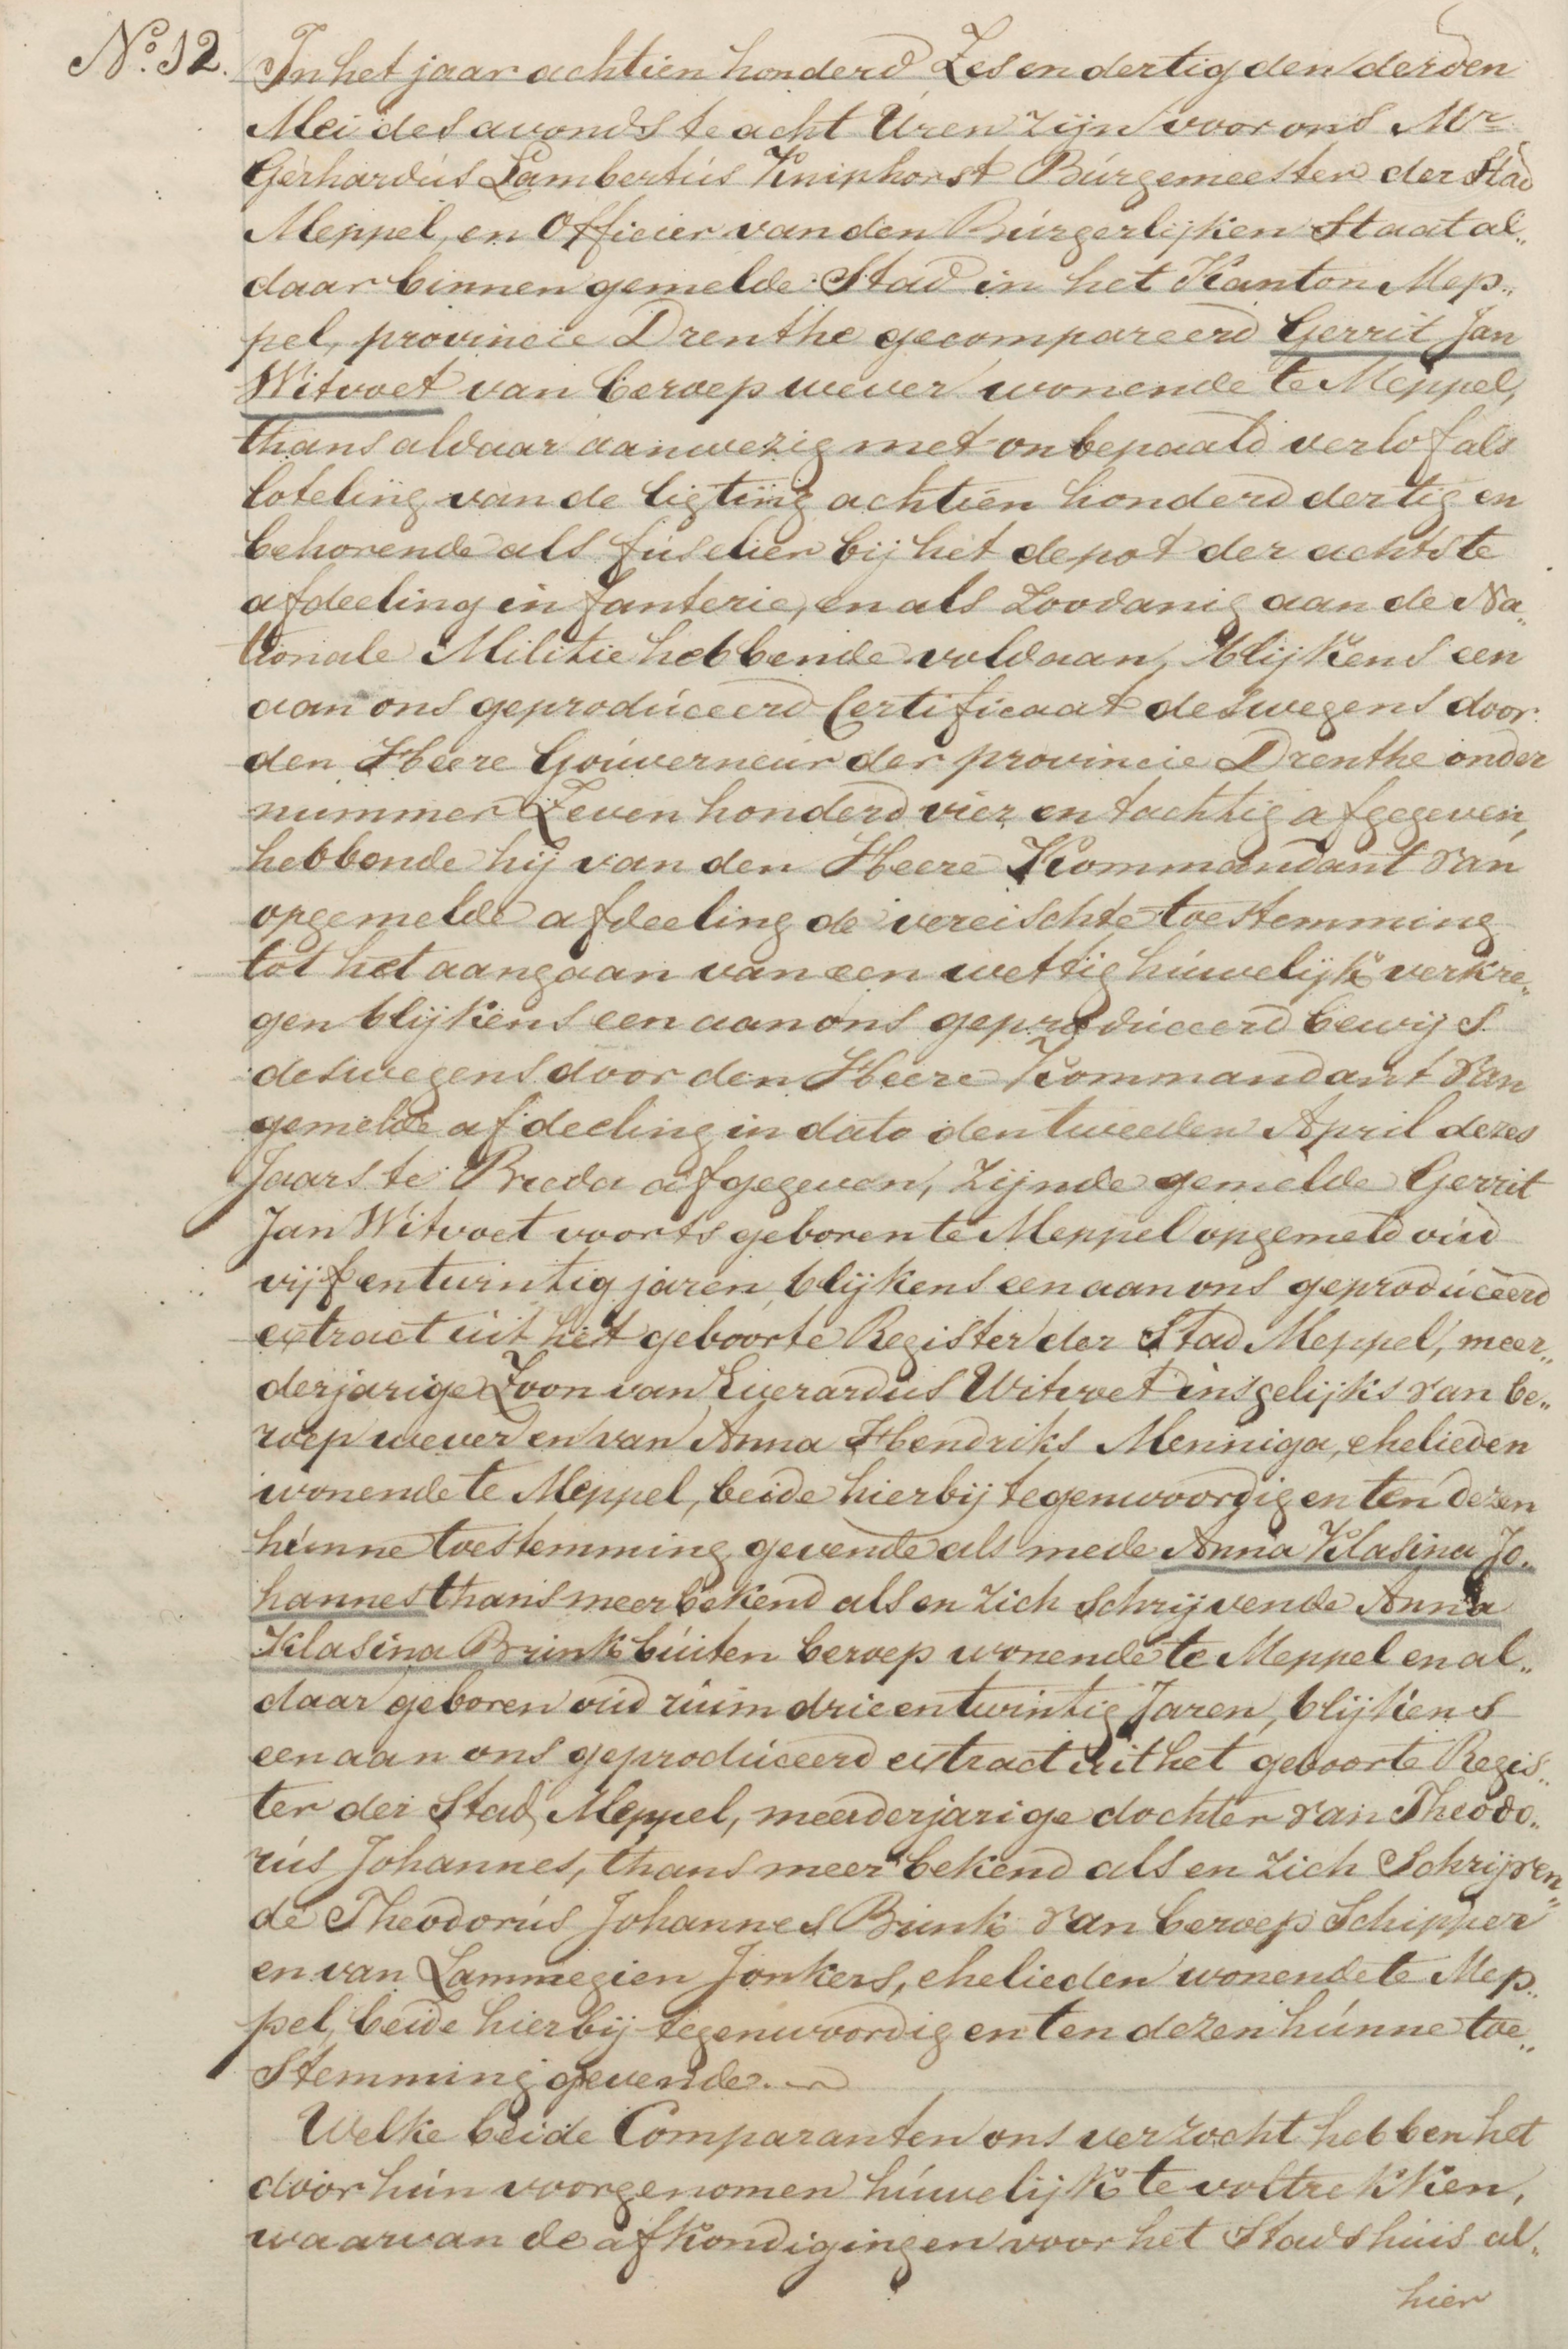 No. 12. In het jaar achtien honderd Zes en dertig den derden
Mei des avonds te acht Uren zijn voor ons Mr
Gerhardús Lambertús Kniphorst Búrgemeester der Stad
Meppel, en Officier van den Búrgerlijken Staat al„
daar binnen gemelde Stad in het Kanton Mep„
pel, provincie Drenthe gecompareerd Gerrit Jan
Witvoet van beroep wever wonende te Meppel,
thans aldaar aanwezig met onbepaald verlof als
loteling van de ligting achtien honderd dertig en
behorende als fúselier bij het depot der achtste
afdeeling infanterie, en als Zoodanig aan de Na„
tionale Militie hebbende voldaan, blijkens een
aan ons geprodúceerd Certificaat deswegens door
den Heere Goúverneúr der provincie Drenthe onder
nummer Zeven honderd vier en tachtig afgegeven,
hebbende hij van den Heere Kommandant van
opgemelde afdeeling de vereischte toestemming
tot het aangaan van een wettig húwelijk verkre„
gen blijkens een aan ons geprodúceerd bewijs
deswegens door den Heere Kommandant van
gemelde afdeeling in dato den tweeden April dezes
Jaars te Breda afgegeven, zijnde gemelde Gerrit
Jan Witvoet voorts geboren te Meppel opgemeld oúd
vijf en twintig jaren, blijkens een aan ons geprodúceerd
extract úit het geboorte Register der Stad Meppel, meer„
derjarige Zoon van Everardus Witvoet insgelijks van be„
roep wever en van Anna Hendriks Menniga, ehelieden
wonende te Meppel, beide hierbij tegenwoordig en ten dezen
húnne toestemming gevende als mede Anna Klasina Jo„
hannes thans meer bekend als en zich schrijvende Anna
Klasina Brink búiten beroep wonende te Meppel en al„
daar geboren oúd rúim drie en twintig Jaren, blijkens
een aan ons geprodúceerd extract úit het geboorte Regis„
ter der Stad Meppel, meerderjarige dochter van Theodo„
rús Johannes, thans meer bekend als en zich Schrijven„
de Theodorús Johannes Brink van beroep Schipper
en van Lammegien Jonkers, ehelieden wonende te Mep„
pel, beide hierbij tegenwoordig en ten dezen húnne toe„
Stemming gevende.
Welke beide Comparanten ons verzocht hebben het
door hún voorgenomen húwelijk te voltrekken,
waarvan de afkondigingen voor het Stadshúis al„
hier